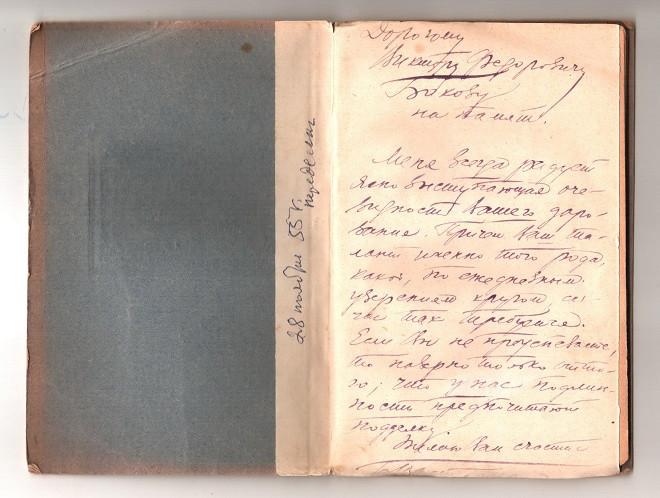 28 ноября 55 г.
Переделкино
Дорогому
Виктору Федоровичу
Бокову
на память.
Меня всегда радует
ясно выступающая оче-
видность Вашего даро-
вания. Причем Ваш та-
лант именно того рода,
какой, по ежедневным
уверениям кругом, сей-
час так требуется.
Если Вы не преуспеваете,
то наверно только пото-
му, что у нас подлин-
ности предпочитают
подделку.
Желаю Вам счастья